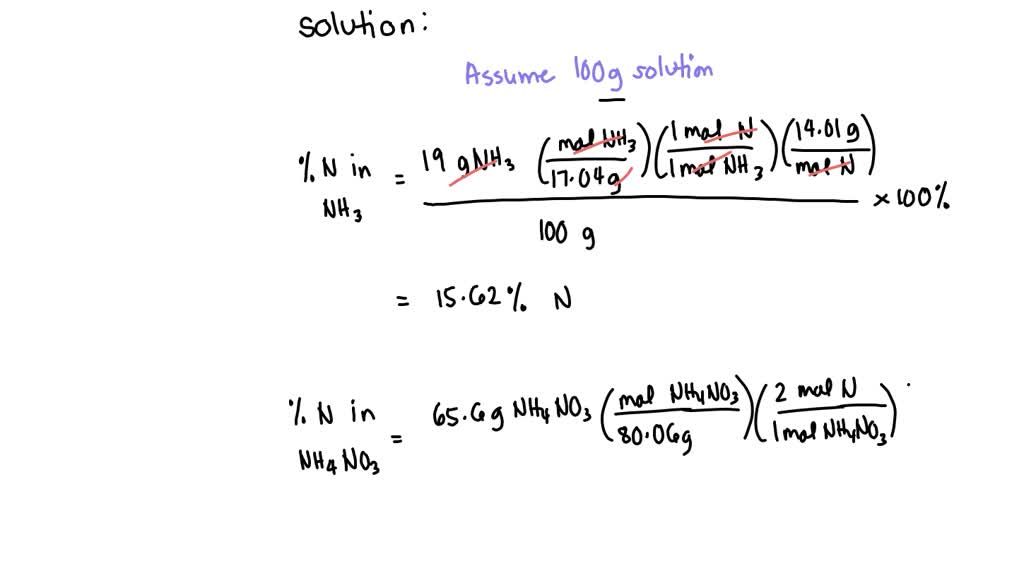 solution:
Assume 100g solution
% N in NH3 = 19 gNH3 (mol NH3/17.04g)(1 mol N/1 mol NH3)(14.01 g/mol N)
100 g
× 100%
= 15.62% N
% N in NH4NO3 = 65.6g NH4NO3 (mol NH4NO3/80.06g)(2 mol N/1 mol NH4NO3)